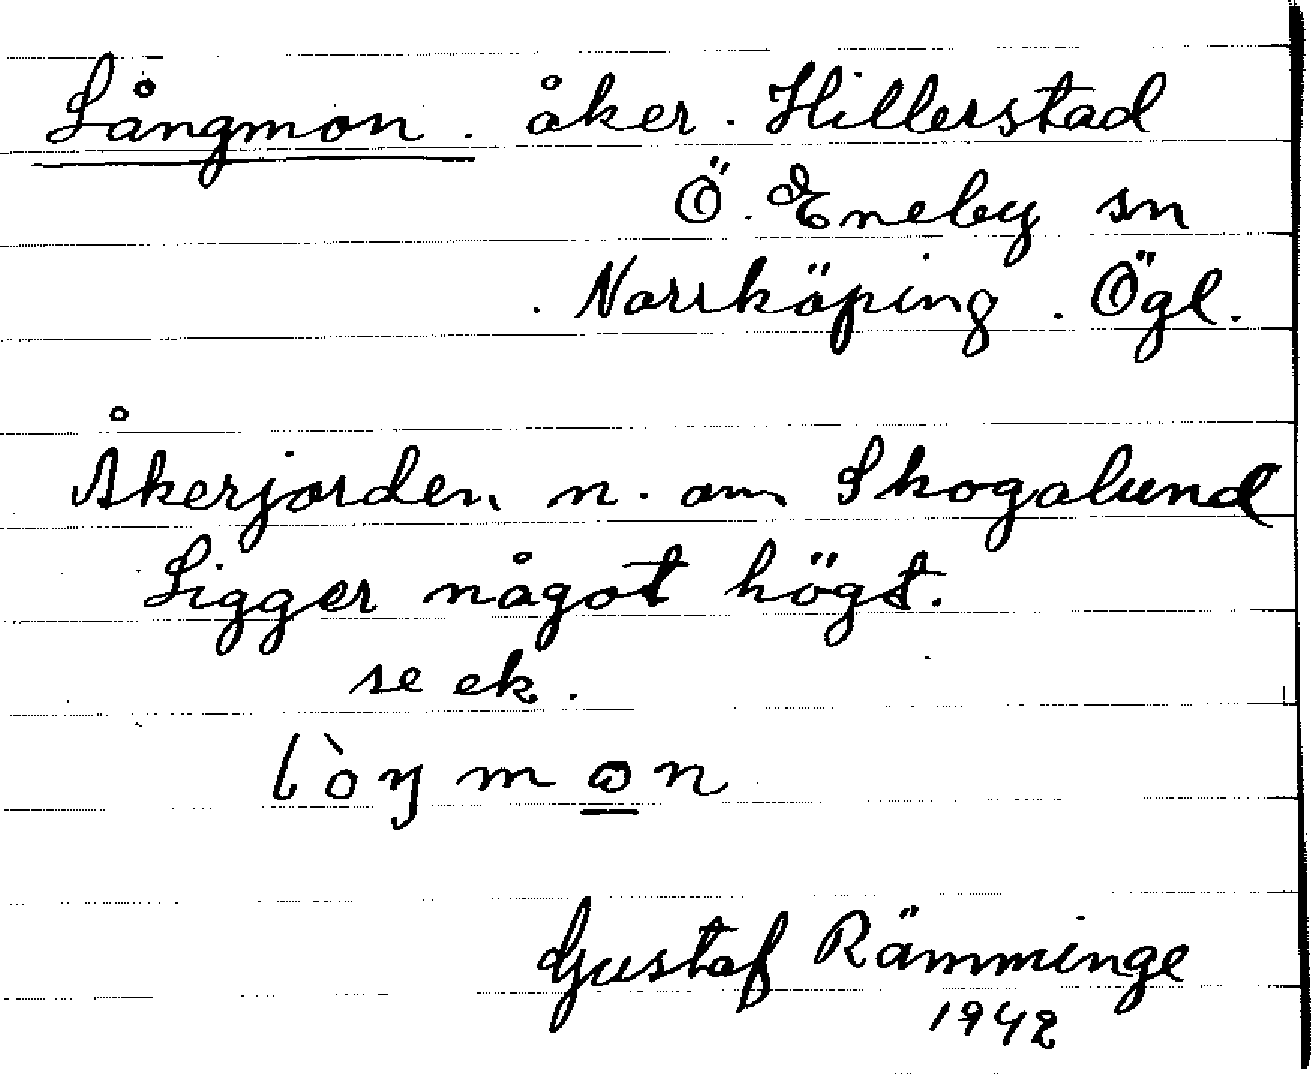 Långmon. åker. Hillerstad
Ö. Eneby sn
. Norrköping. Ögl.
Åkerjorden n. om Skogalund
Ligger något högt.
se ek.
lòŋmɷn
Gustaf Rämminge
1942